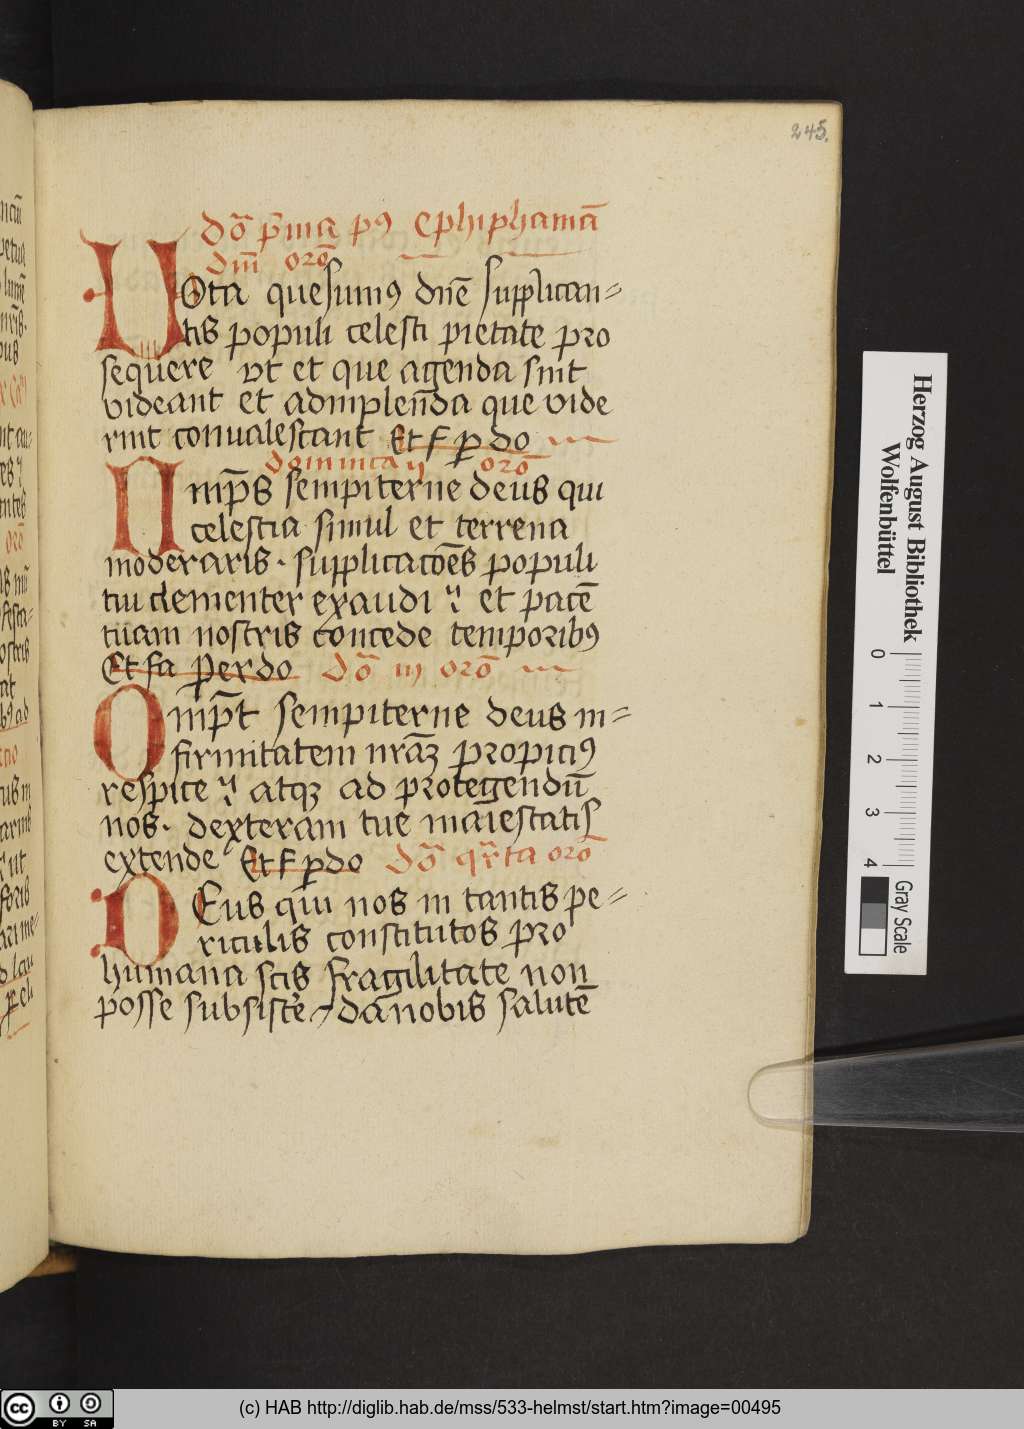 245.
Dō p̄ma p9 Ephiphamā
Dm̄ orō
UOta quesumus dn̄e supplican=
tis populi celesti pietate pro
sequere vt et que agenda sint
videant et adimplen̄da que vide
rint conualescant Et F ꝑ do
dominica ij orō
Omp̄s sempiterne deus qui
celestia simul et terrena
moderaris · supplicatōēs populi
tui clementer exaudi et pacē
tuam nostris concede temporib9
Et fa Per do Dō iij orō
Omp̄t sempiterne deus in=
firmitatem nrāꝫ propici9
respice atqꝫ ad protegendū
nos · dexteram tue maiestatis
extende Et F ꝑ do Dō qr̄ta orō
DEus qui nos in tantis pe=
riculis constitutos pro
humana scis fragilitate non
posse subsistē dā nobis salutē
Herzog August Bibliothek
Wolfenbüttel
0 1 2 3 4
Gray Scale
cc BY SA
(c) HAB http://diglib.hab.de/mss/533-helmst/start.htm?image=00495